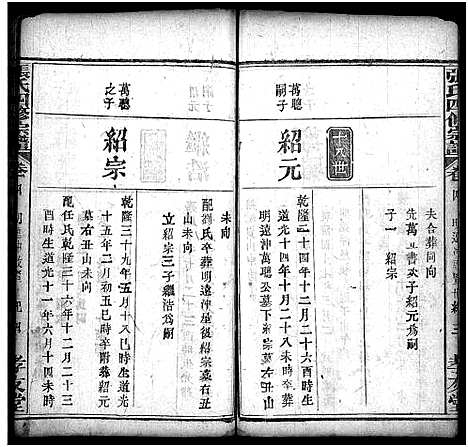 張氏四修宗譜
卷四
孝友堂
夫合葬同向
先萬聰公子紹元爲嗣
子一 紹宗
十九世
萬聰
嗣子
紹元
乾隆二十四年十二月二十六酉時生
道光十四年十月二十八未時卒葬
明遠沖萬聰公墓下紹宗墓左丑山
未向
配劉氏卒葬明遠沖星紹宗墓右丑
立紹宗三子繼浩爲嗣
萬聰
之子
紹宗
乾隆三十九年五月十八巳時生道光
十五年二月初五巳時卒附葬紹元
墓右丑山未向
配任氏乾隆三十六年十二月二十三
酉時生道光十一年六月十四未時
張氏四修宗譜
卷四
孝友堂